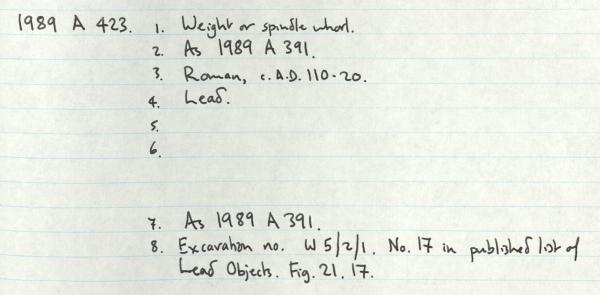 1989 A 423. 1. Weight or spindle whorl.
2. As 1989 A 391.
3. Roman, c. A.D. 110-20.
4. Lead.
5.
6.
7. As 1989 A 391.
8. Excavation no. W 5/2/1. No. 17 in published list of
Lead Objects. Fig. 21. 17.